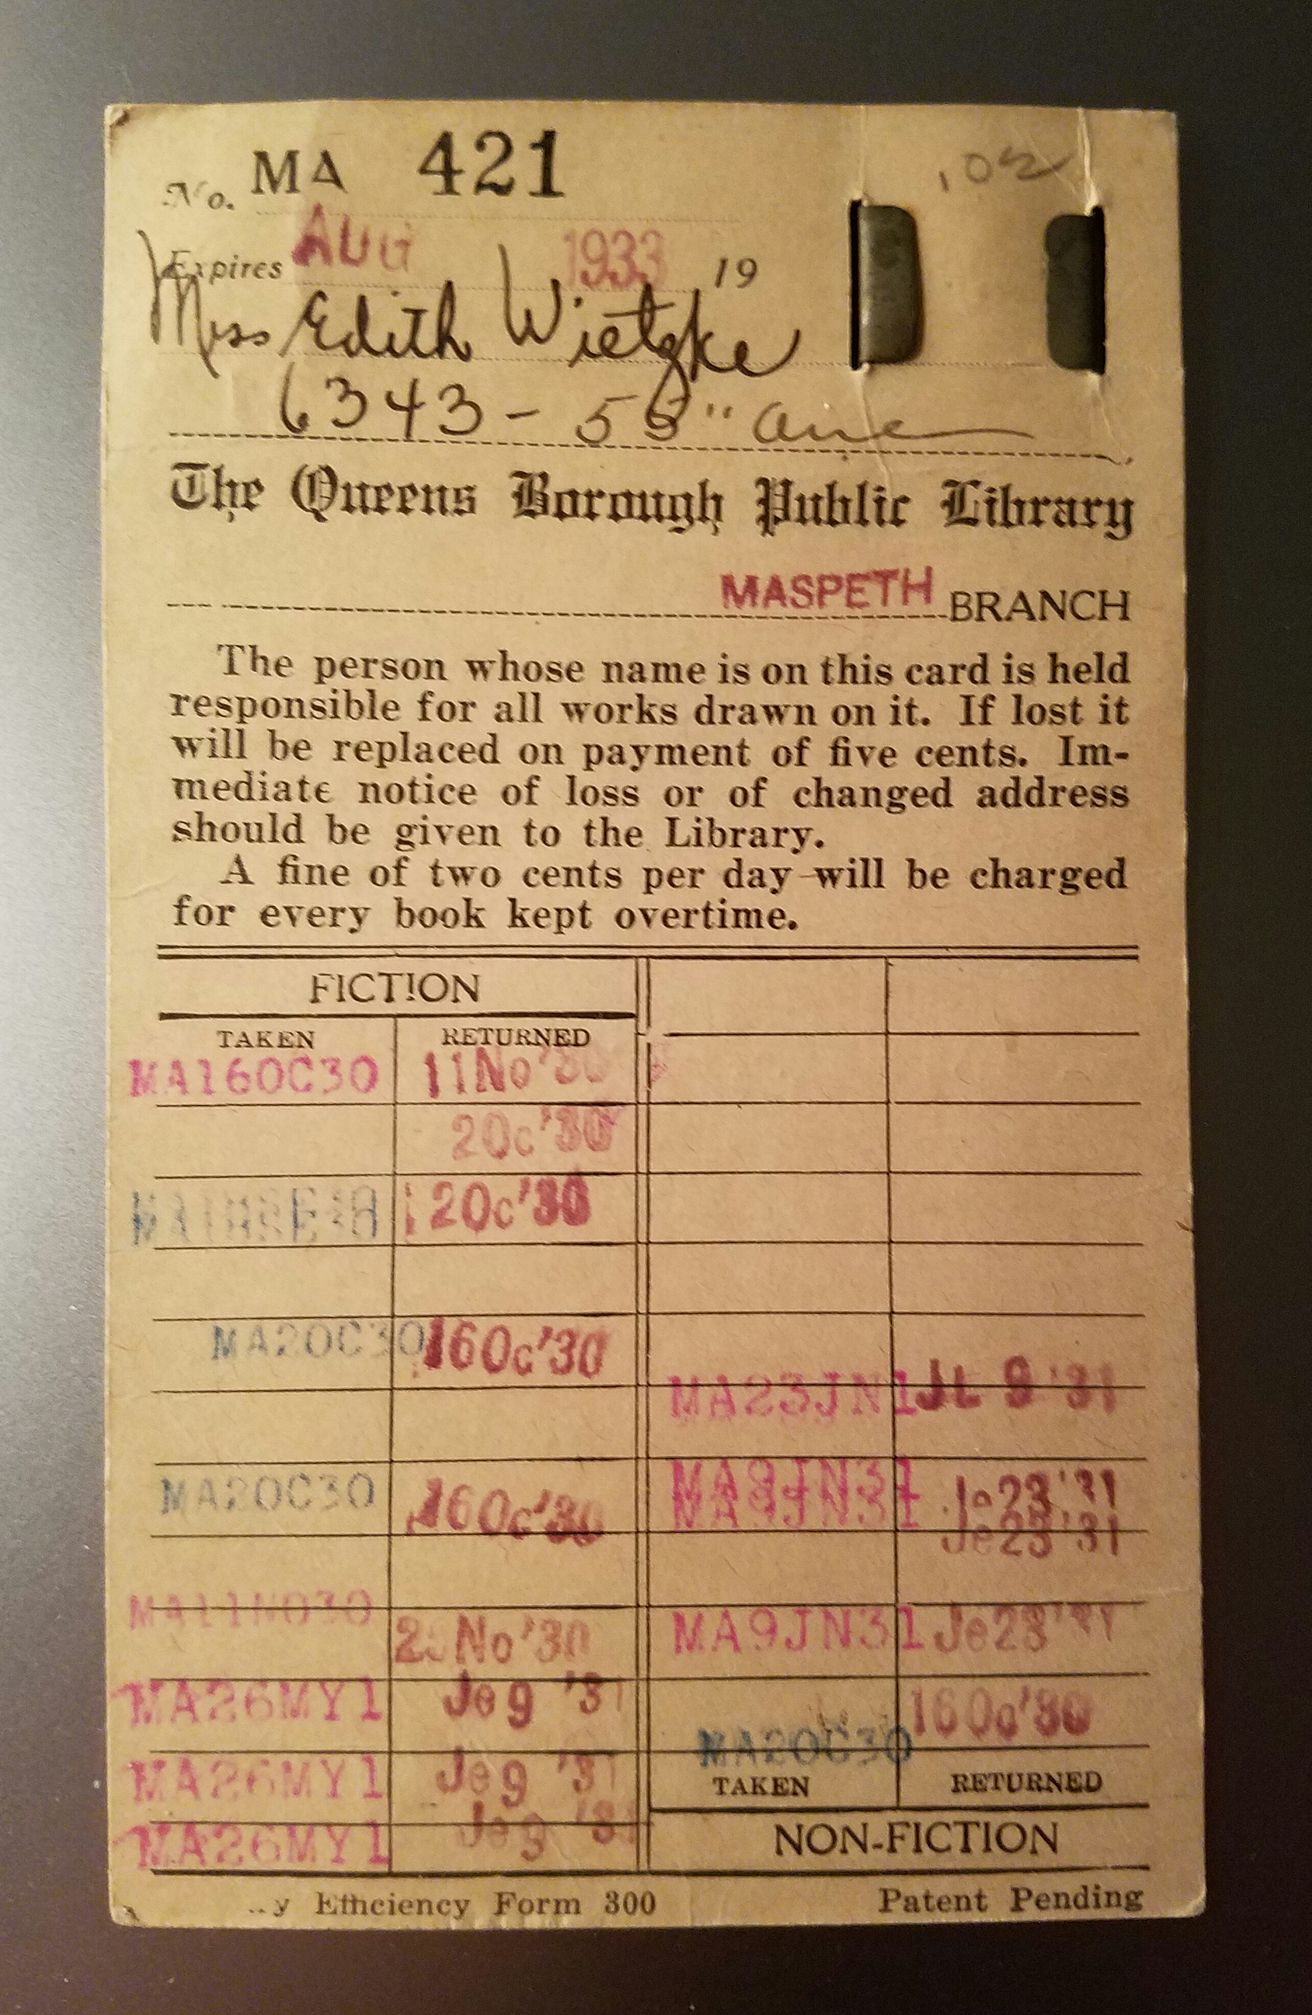 .02
No. MA 421
Expires AUG 1933 19
Miss Edith Wietzke
6343 - 55" ave
The Queens Borough Public Library
MASPETH BRANCH
The person whose name is on this card is held
responsible for all works drawn on it. If lost it
will be replaced on payment of five cents. Im-
mediate notice of loss or of changed address
should be given to the Library.
A fine of two cents per day will be charged
for every book kept overtime.
FICTION
TAKEN RETURNED
MA16OC30 11No'30
20c'30
120c'30
MA2OC30 160c'30
MA2OC30 160c'30
MA11NO30
No'30
MA26MY1 Je 9 '31
MA26MY1 Je 9 '31
MA26MY1 Je 9 '31
MA23JN1 JL 9 '31
MA9JN31 Je23'31
MA9JN31 Je23'31
MA9JN31 Je23'31
MA2OC30 160c'30
TAKEN RETURNED
NON-FICTION
Efficiency Form 300 Patent Pending